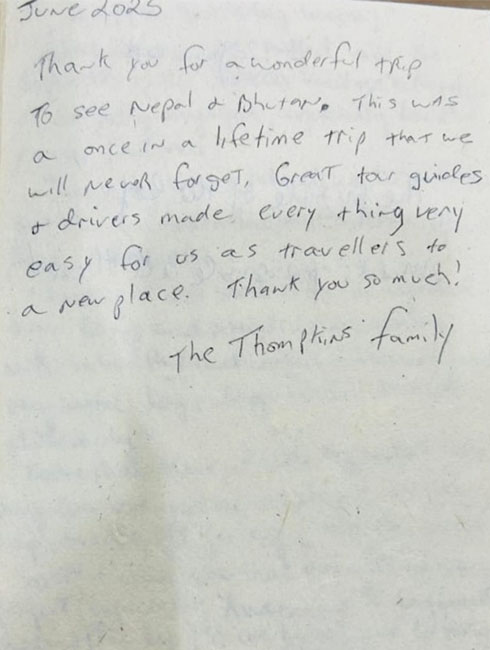 June 2025
Thank you for a wonderful trip
To see Nepal & Bhutan. This was
a once in a lifetime trip that we
will never forget, Great tour guides
& drivers made every thing very
easy for us as travellers to
a new place. Thank you so much!
The Thompkins family